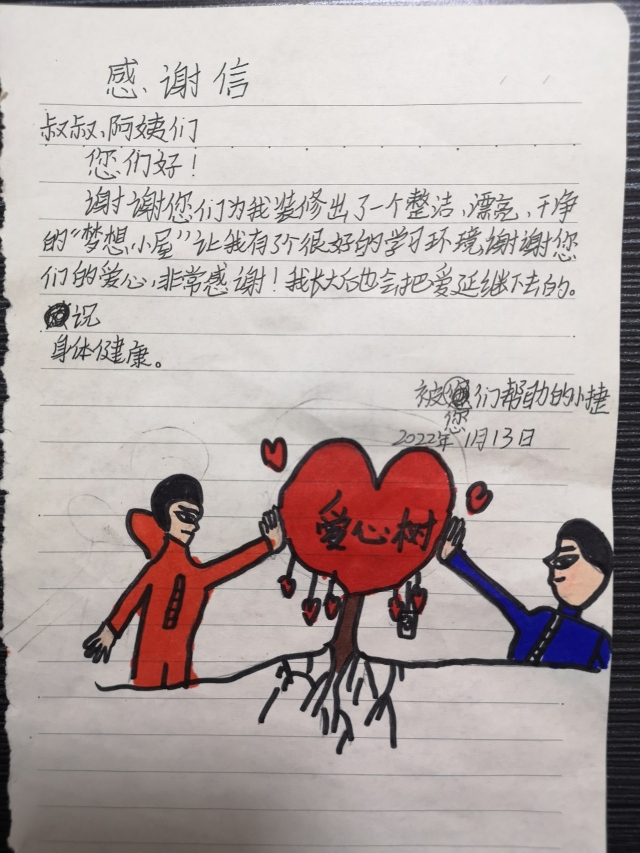 感谢信
叔叔、阿姨们
您们好！
谢谢您们为我装修出了一个整洁、漂亮、干净
的“梦想小屋”让我有了个很好的学习环境谢谢您
们的爱心，非常感谢！我长大后也会把爱延继下去的。
祝
身体健康。
被您们帮助的小捷
2022年11月13日
爱心树